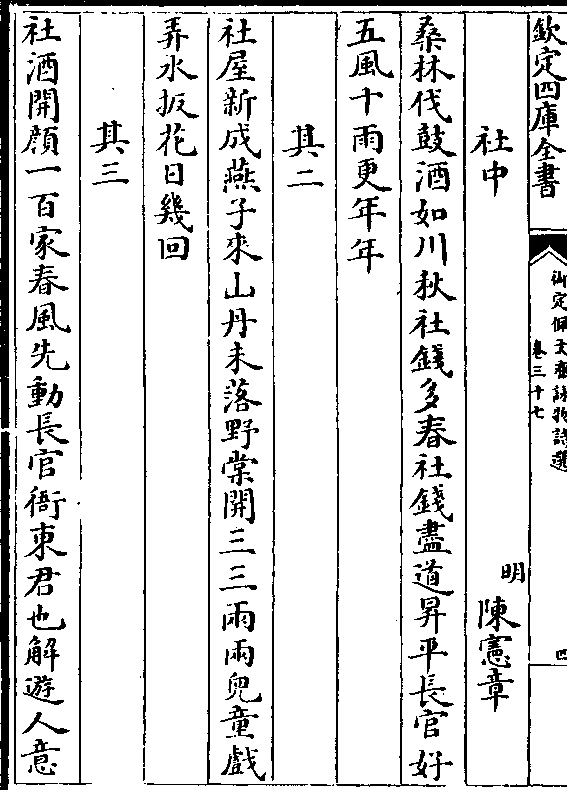 欽定四庫全書
御定佩文齋詠物詩選
卷三十七
四
社中
明
陳憲章
桑林伐鼓酒如川秋社錢多春社錢盡道昇平長官好
五風十雨更年年
其二
社屋新成燕子來山丹未落野棠開三三兩兩兒童戲
弄水扳花日幾回
其三
社酒開顔一百家春風先動長官衙東君也解遊人意